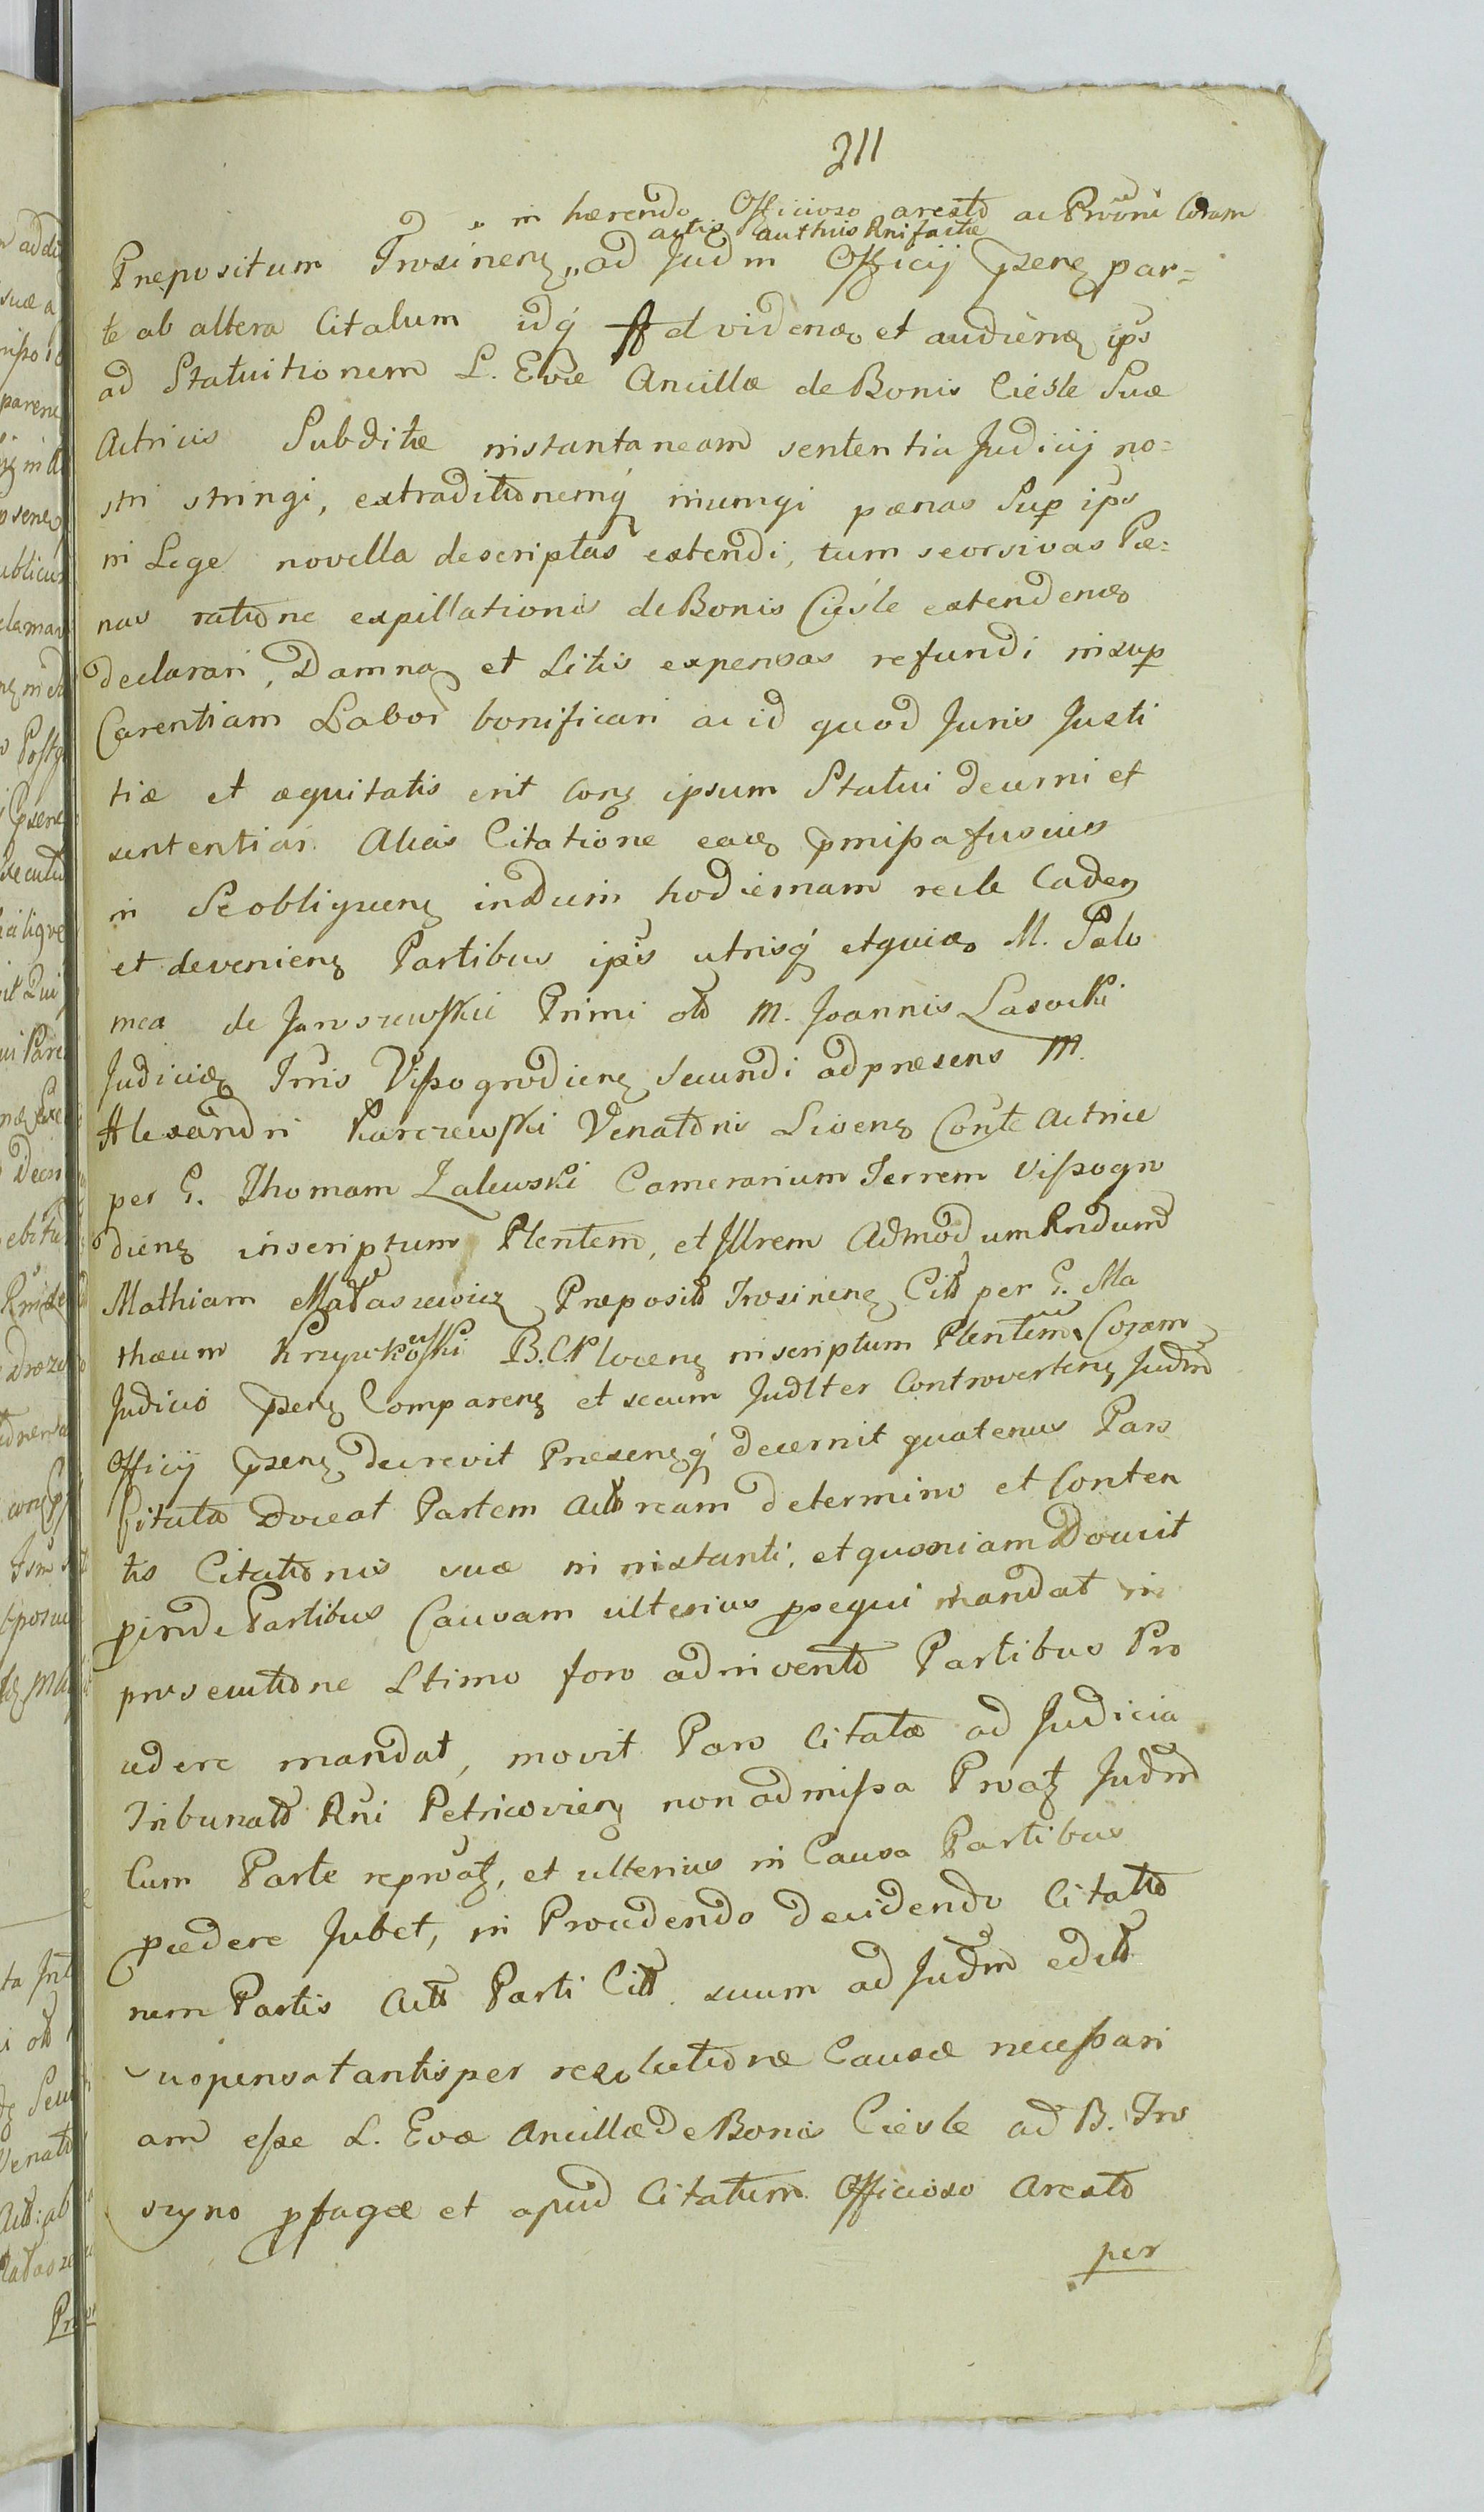 211
„ in hærendo Officioso aresto ac Prōōni Coram
actis authūis Rnī factæ
Præpositum Trosinenꝫ „ ad Judm Officij p̄senꝫ par=
te ab altera Citatum idꝗ Ad videnꝫ et audienꝫ ips
ad Statuitionem L. Evæ Ancillæ de Bonis Cieśle Suæ
Actricis Subditæ instantaneam sententia Judicij no=
stri stringi, extraditionemꝗ iniungi pænas Sup ips
in Lege novella descriptas extendi, tum seorsivas Pæ=
nas ratione expillationis de Bonis Cieśle extendenꝫ
declarari, Damna et Litis expensas refundi insup
Carentiam Labor bonificari ac id quod Juris Justi
tiæ et æquitatis erit conꝫ ipsum Statui decerni et
sententiari. Alias Citatione eaꝫ p̄missa fusius
in Se obliquenꝫ in Diem hodiernam recte Cadenꝫ
et devenienꝫ Partibus ip̄is utrisꝗ etquiaꝫ M. Salo
mea de Jaroszewskie Primi olō M. Joannis Lasocki
Judicis Trris Vissogrodienꝫ Secundi ad præsens M.
Alexandri Karczewski Venatoris Livenꝫ Conte Actrice
per G. Thomam Zalewski Camerarium Terrem Vissogro
dienꝫ inscriptum Plentem, et Jllrem Admodum Rndum
Mathiam Mataszewicz Præposit Trosinenꝫ Citt per G. Ma
thæum Krzywkowski B.C. Plocenꝫ inscriptum Plentem Coram
Judicio p̄senꝫ Comparenꝫ et secum Judlter Controvertenꝫ Judm
Officij p̄senꝫ decrevit Præsenꝫꝗ decernit quatenus Pars
Citata doceat Partem Acttoream de termino et Conten
tis Citationis suæ in instanti, et quoniam Docuit
p̄inde Partibus Causam ulterius p̄sequi mandat in
prosecutione Ltimo foro adinvento Partibus Pro
cedere mandat, movit Pars Citata ad Judicia
Tribunalō Rnī Petricovienꝫ non admissa Prvatꝫ Judm
Cum Parte reprvatꝫ, et ulterius in Causa Partibus
p̄cedere Jubet, in Procedendo decidendo Citatio
nem Partis Actt Parti Citt. suum ad Judm editt
suspensa tantisper resolutione Causæ necessari
am esse L. Evæ Ancillæ de Bonis Cieśle ad B. Tro
szyno p̄fugæ et apud Citatum Officioso Aresto
per